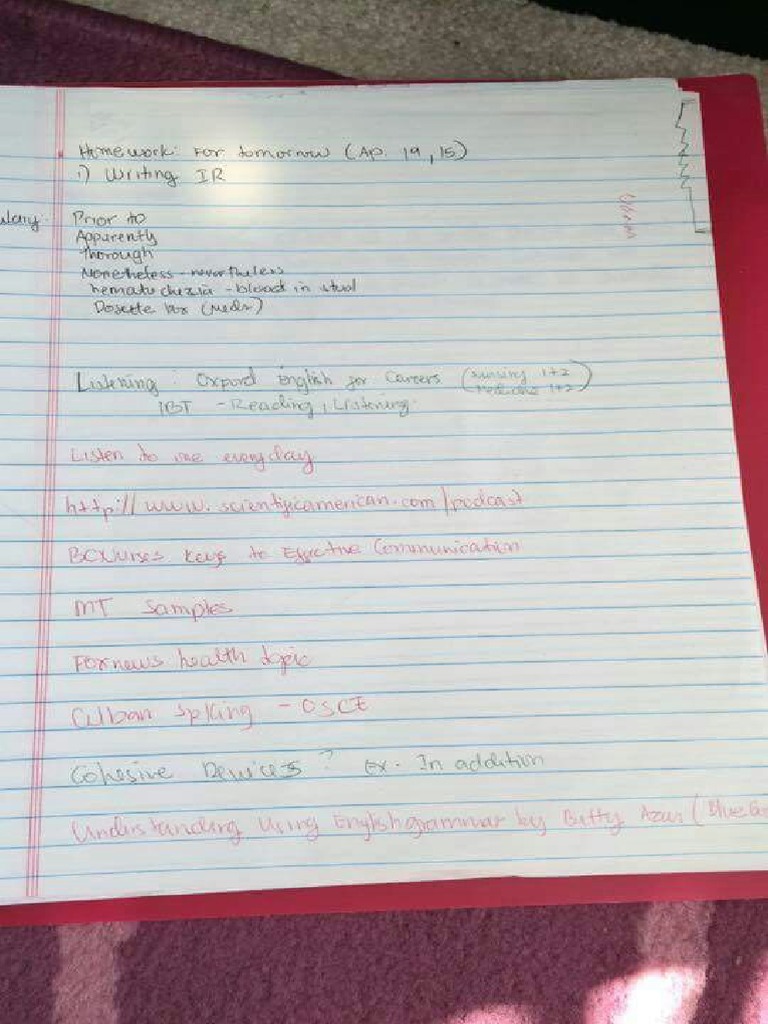 Homework: For tomorrow (Ap. 19, 15)
1) Writing IR
Prior to
Apparently
thorough
Nonetheless - nevertheless
hematochezia - blood in stool
Dosette box (meds)
Listening: Oxford English for Careers (nursing 1+2
medicine 1+2)
IBT - Reading, Listening
Listen to one everyday
http://www.scientificamerican.com/podcast
BCNurses Keys to Effective Communication
MT Samples
Foxnews health topic
spking - OSCE
Cohesive Devices? Ex. In addition
Understanding Using English grammar by Betty Azar (